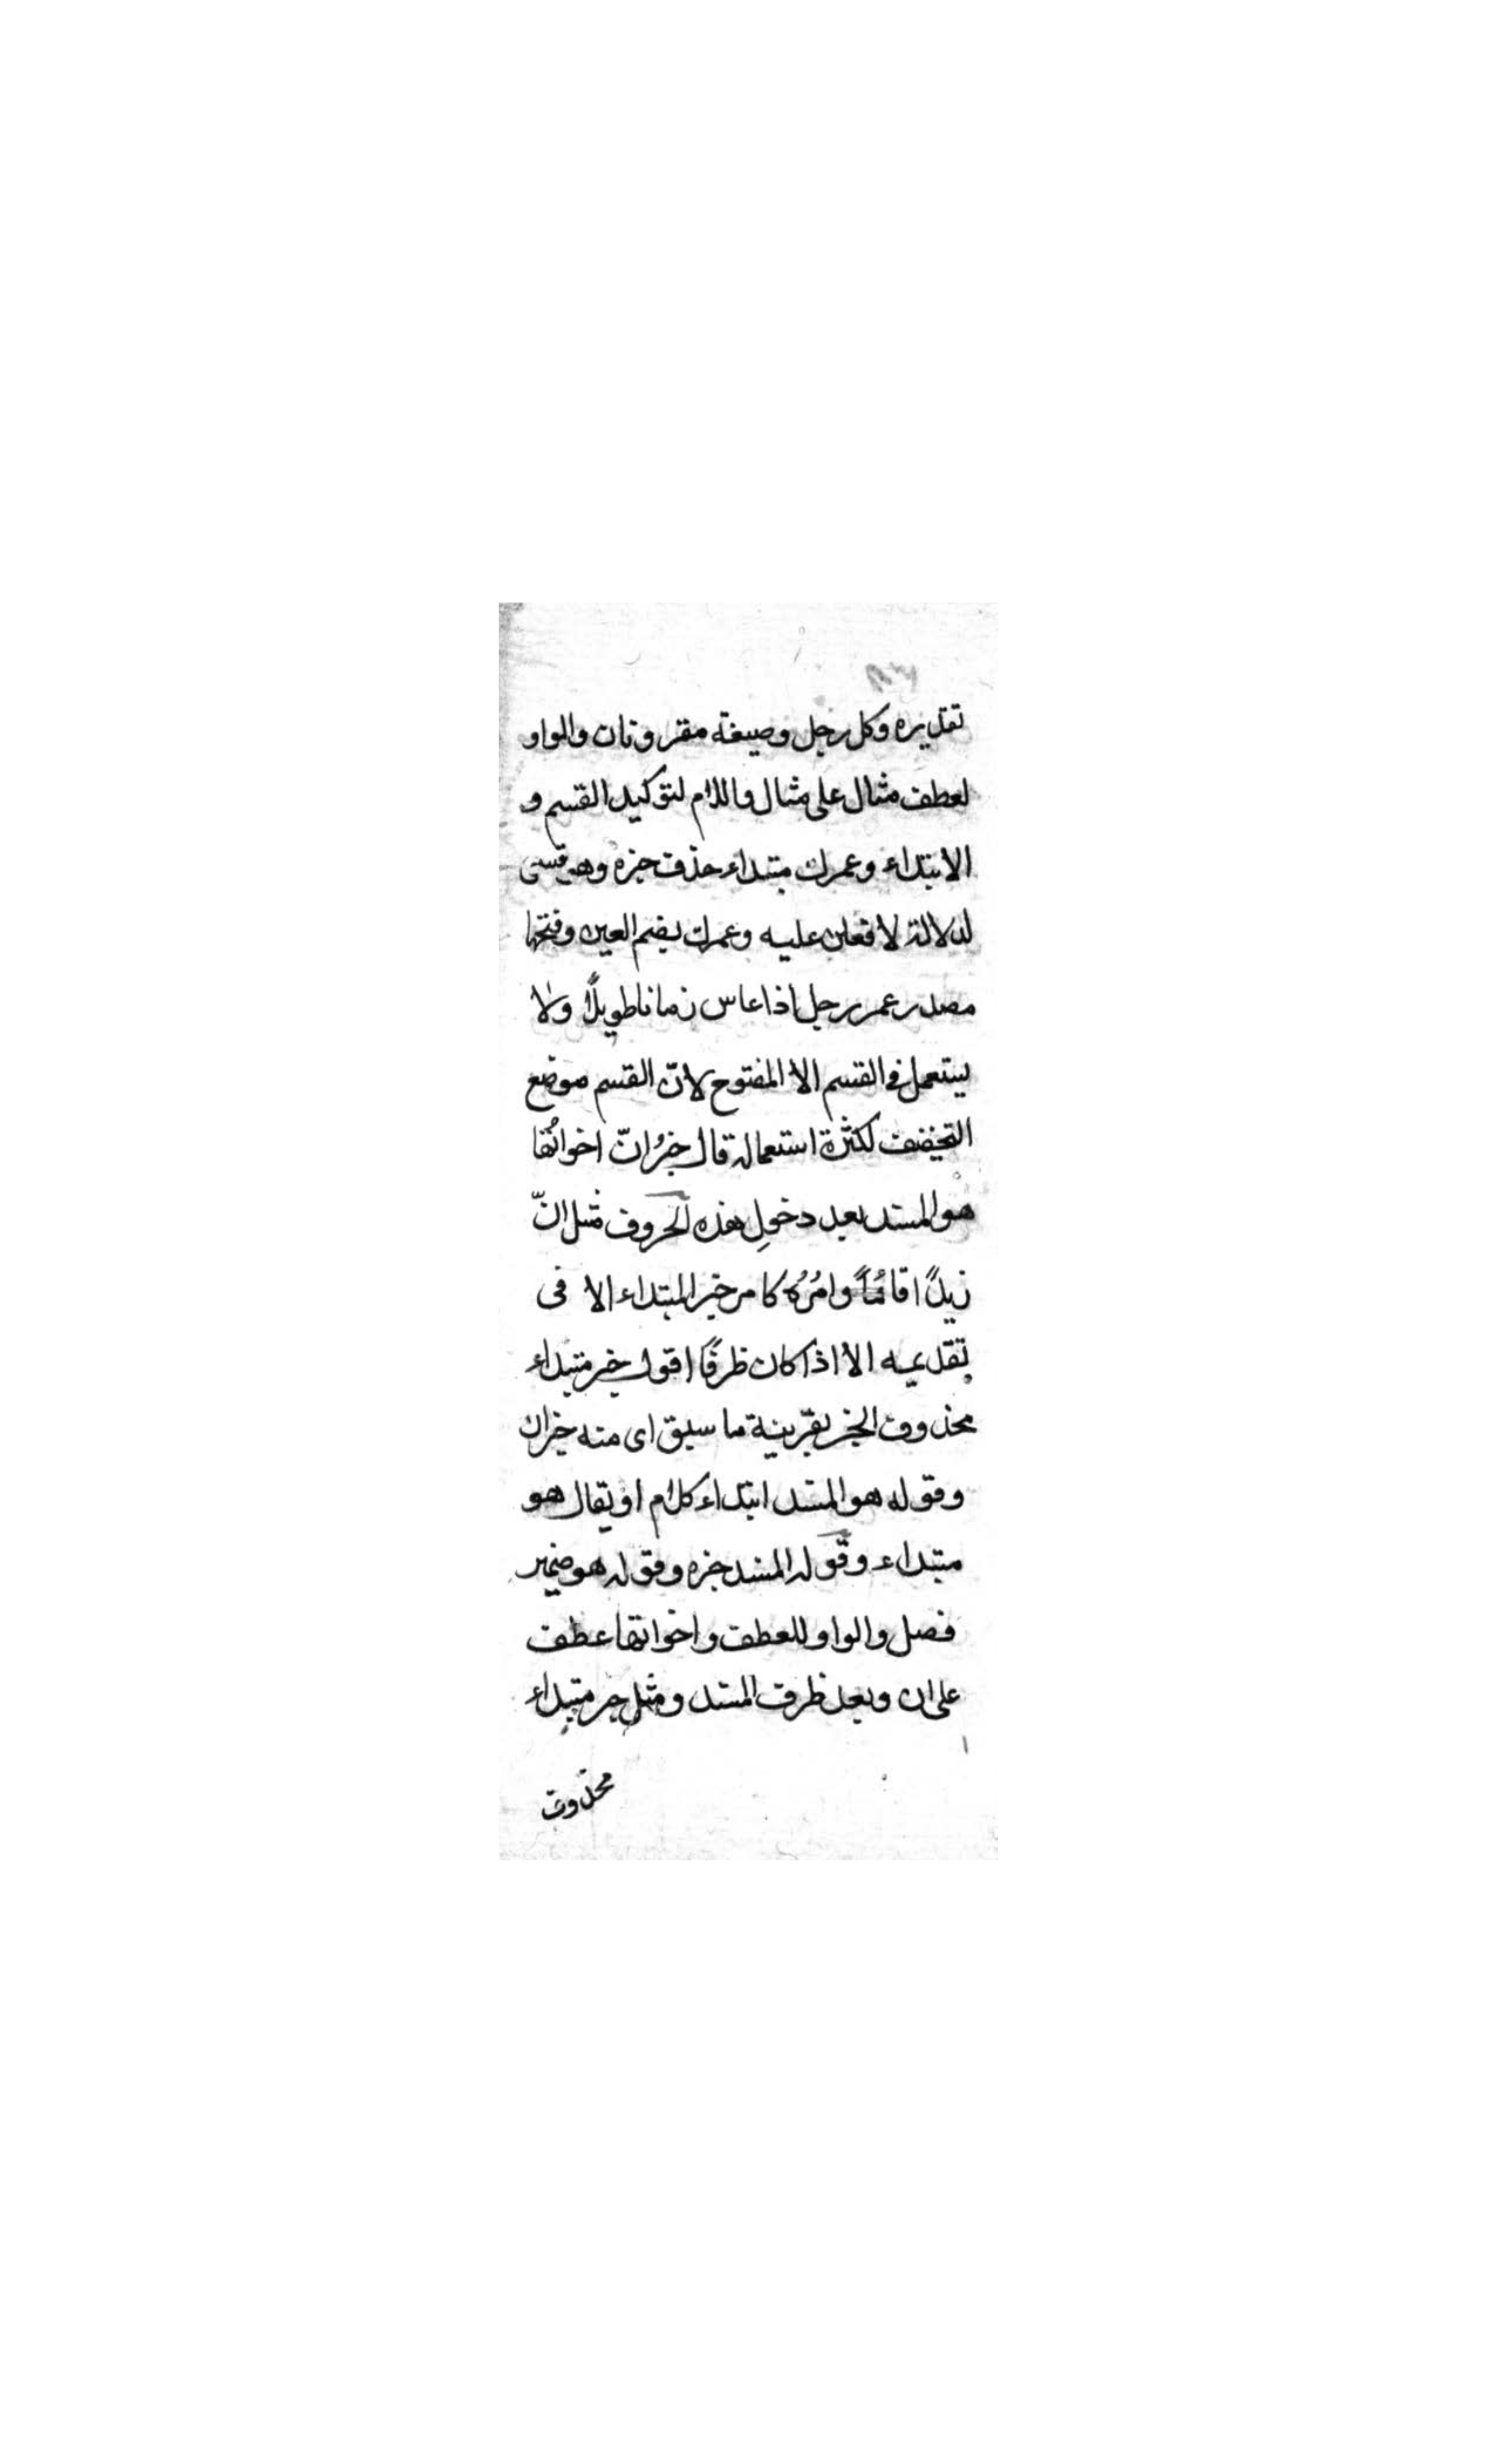 تقديره وكل رجل وصيغة مقرونان والواو
لعطف مثال على مثال واللام لتوكيد القسم و
الابتداء وعمرك مبتداء حذف خبره وهو قسمى
لدلالة لافعلن عليه وعمرك بضم العين وفتحها
مصدر عمر رجل اذا عاس زمانا طويلاً ولا
يستعمل فى القسم الا المفتوح لانّ القسم موضع
التخفيف لكثرة استعماله قال خبرُ انّ اخواتُها
هو المسند بعد دخولِ هذه الحروف مثل انّ
زيدًا قائمًا وامرُه كامر خبر المبتداء الا فى
تقديمه الا اذا كان ظرفًا اقول خبر مبتداء
محذوف الخبر بقرينة ما سبق اى منه خبران
وقوله هو المسند ابتداء كلام او يقال هو
مبتداء وقوله المسند خبره وقوله هو ضمير
فصل والواو للعطف واخواتها عطف
على ان وبعد ظرف المسند ومثل خبر مبتداء
محذوف